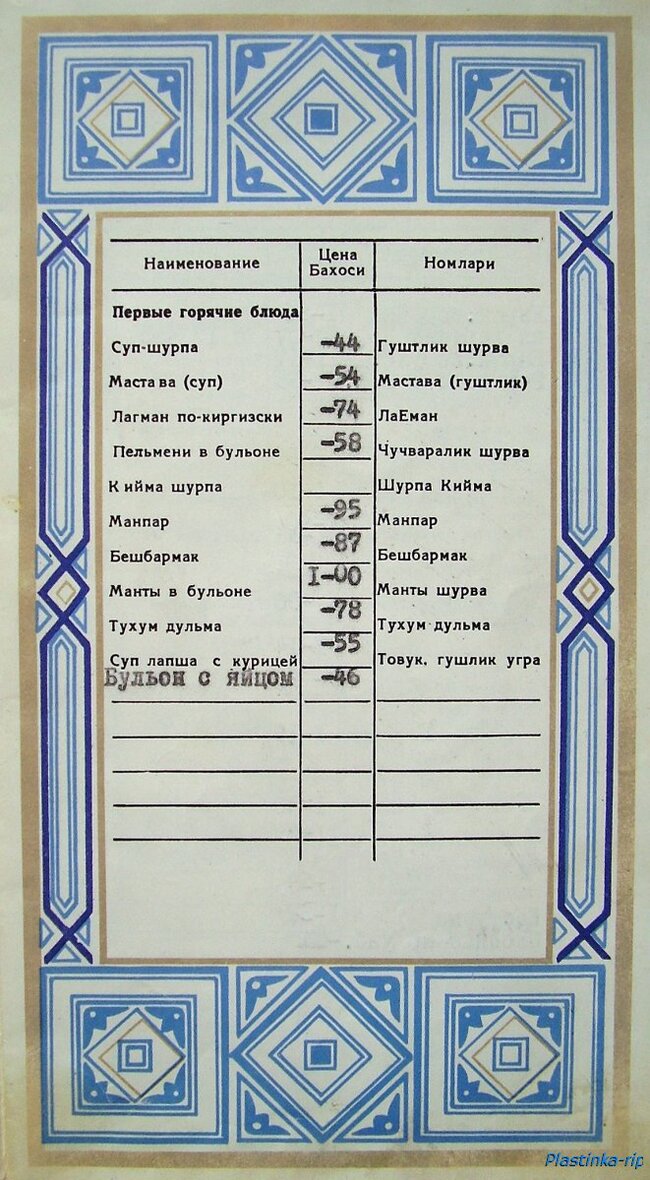 Наименование Цена Бахоси Номлари
Первые горячие блюда
Суп-шурпа -44 Гуштлик шурва
Мастава (суп) -54 Мастава (гуштлик)
Лагман по-киргизски -74 ЛаЕман
Пельмени в бульоне -58 Чучваралик шурва
Кийма шурпа Шурпа Кийма
Манпар -95 Манпар
Бешбармак -87 Бешбармак
Манты в бульоне I-00 Манты шурва
Тухум дульма -78 Тухум дульма
Суп лапша с курицей -55 Товук. гушлик угра
Бульон с яйцом -46
Plastinka-rip